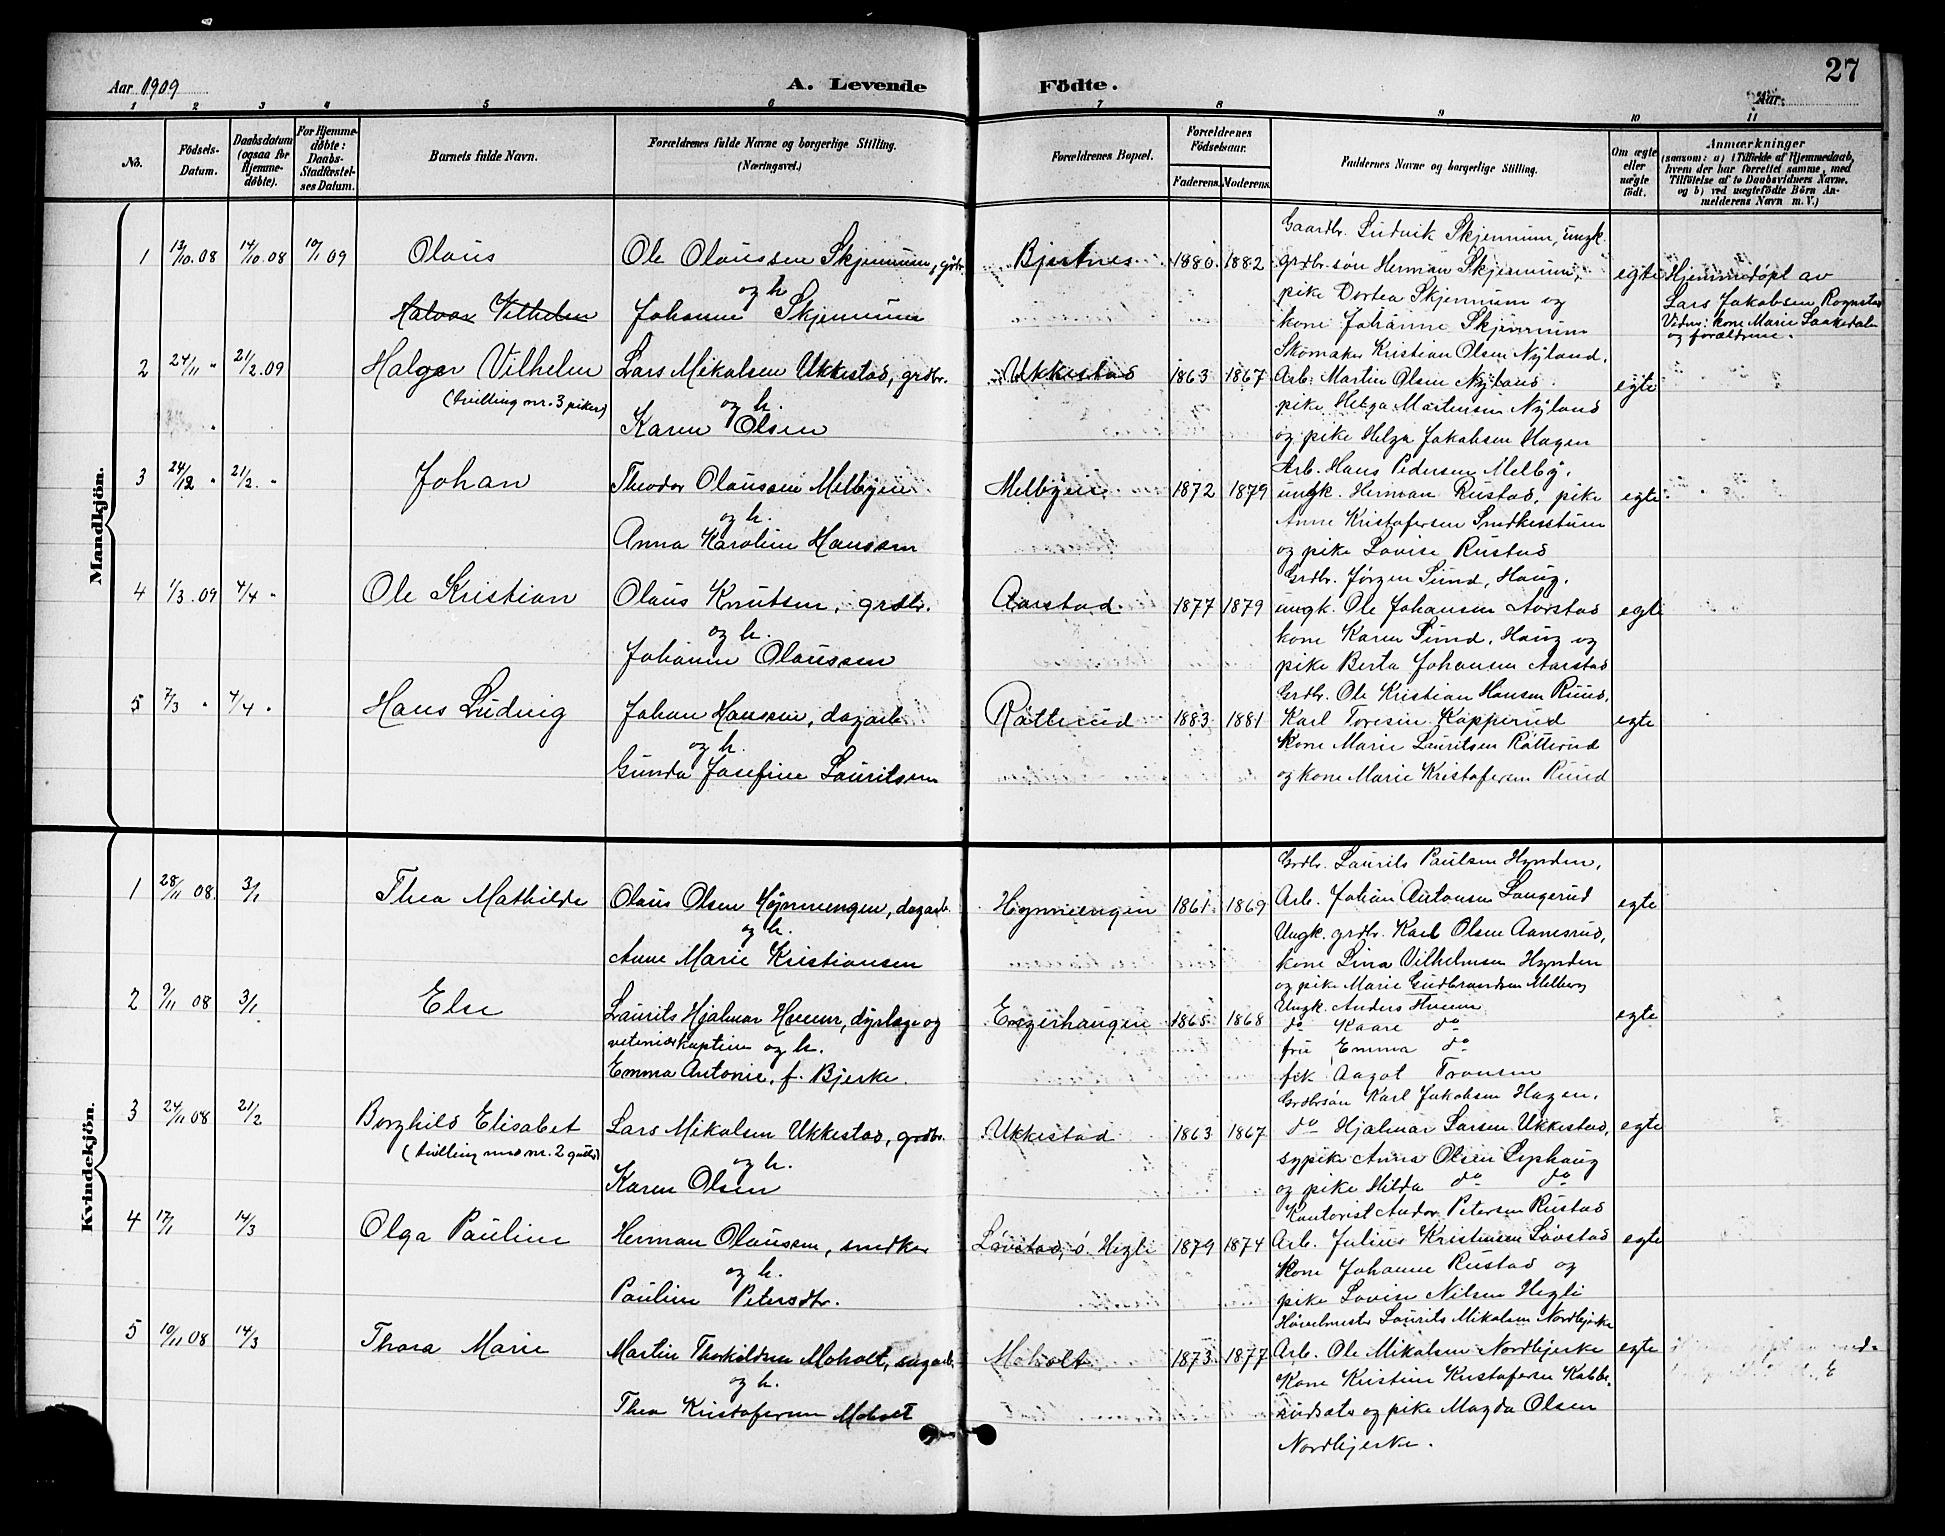 Aar 1909
A. Levende Födte.
27
Aar
1 2 3 4 5 6 7 8 9 10 11
No.
Födsels-Datum.
Daabsdatum (ogsaa for Hjemme-døbte).
For Hjemme-døbte: Daabs-Stadfæstel-ses Datum.
Barnets fulde Navn.
Forældrenes fulde Navne og borgerlige Stilling. (Næringsvei.)
Forældrenes Bopæl.
Forældrenes Födselsaar.
Faderens. Moderens.
Faddernes Navne og borgerlige Stilling.
Om ægte eller uægte födt.
Anmærkninger
(saasom: a) i Tilfælde af Hjemmedaab,
hvem der har forrettet samme, med
Tilföielse af to Daabsvidners Navne,
og b) ved uægtefödte Börn An-
melderens Navn m. V.)
Mandkjön.
1 13/10.08 14/10.08 10/1 09 Olaus
Ole Olaussen Skjennum, grdbr.
og h.
Johanne Skjennum
Bjertnes 1880 1882
Gaardbr. Ludvik Skjennum, ungk.
grdbr.søn Herman Skjennum,
pike Dortea Skjennum og
kone Johanne Skjennum
egte
Hjemmedøpt av
Lars Jakobsen Rognstad
Vidner: kone Marie Laakedalen
og forældrene.
Halvor Vilhelm
2 24/11 " 21/2.09 Halgor Vilhelm
(tvilling m. nr. 3 piker)
Lars Mikalsen Ukkestad, grdbr.
og h.
Karen Olsen
Ukkestad 1863 1867
Skomaker Kristian Olsen Nyland.
Arb. Martin Olsen Nyland.
pike Helga Martinsen Nyland
og pike Helga Jakobsen Hagen
egte
3 24/12 " 21/2. " Johan
Theodor Olaussen Melbyen
og h.
Anna Karoline Hanssen
Melbyen 1872 1879
Arb. Hans Pedersen Melby.
ungk. Herman Rustad, pike
Anne Kristofersen Snekkerstuen
og pike Lovise Rustad
egte
4 1/3.09 4/4 " Ole Kristian
Olaus Knutsen, grdbr.
og h.
Johanne Olaussen
Aarstad 1877 1879
Grdbr. Jørgen Sund, Haug.
ungk. Ole Johansen Aarstad
kone Karen Sund, Haug og
pike Berta Johansen Aarstad
egte
5 7/3 " 4/4 " Hans Ludvig
Johan Hanssen, dagarb.
og h.
Gunda Josefine Lauritsen
Rötterud 1883 1881
Grdbr. Ole Kristian Hansen Ruud,
Karl Toresen Kopperud
Kone Marie Lauritsen Rötterud
og kone Marie Kristofersen Ruud
egte
Kvindekjön.
1 28/11 08. 3/1 Thea Mathilde
Olaus Olsen Højnnengen, dagarb.
og h.
Anne Marie Kristiansen
1861 1869
Grdbr. Laurits Paulsen Hynden,
Arb. Johan Antonsen Langerud
Ungk. grdbr. Karl Olsen Aamesrud,
kone Lina Vilhelmsen Hynden
og pike Marie Gudbrandsen Melberg
egte
2 9/11 08 3/1 Else
Laurits Hjalmar Hveem, dyrlæge og
veterinærkaptein og h.
Emma Antonie, f. Bjerke.
Engerhaugen 1865 1868
Ungk. Anders Hveem
do Kaare do
fru Emma do
frk. Aagot Fronsen
egte
3 24/11 08 21/2 Borghild Elisabet
(tvilling med nr. 2 gutter)
Lars Mikalsen Ukkestad, grdbr.
og h.
Karen Olsen
Ukkestad 1863 1867
Grdbrsøn Karl Jakobsen Hagen.
do Hjalmar Larsen Ukkestad,
sypike Anna Olsen Lyshaug
og pike Hilda do do
egte
4 17/1 14/3 Olga Pauline
Herman Olaussen, snedker
og h.
Pauline Petersdtr.
Løvstad, ö. Hegli 1879 1874
Kontorist Andor Petersen Rustad
Arb. Julius Kristiansen Løvstad
Kone Johanne Rustad og
pike Lovise Nilsen Hegli
egte
5 10/11 08 14/3 Thora Marie
Martin Thorkildsen Moholt, sagarb.
og h.
Thea Kristofersen Moholt
Moholt 1873 1877
Høvelmester Laurits Mikalsen Nordbjerke
Arb. Ole Mikalsen Nordbjerke
Kone Kristine Kristofersen Kabbe-
rudsæter og pike Magda Olsen
Nordbjerke.
egte